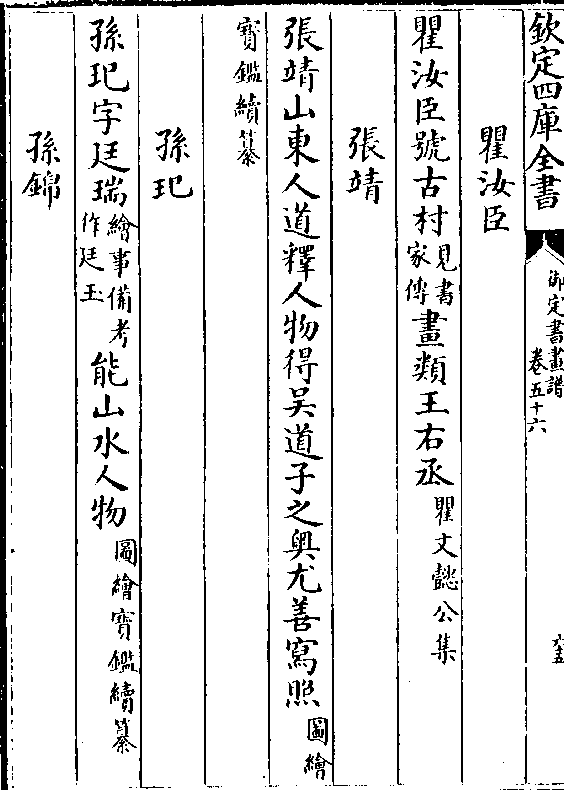 欽定四庫全書
御定書畫譜
卷五十六
六五
瞿汝臣
瞿汝臣號古村見書家傳畫類王右丞瞿文懿公集
張靖
張靖山東人道釋人物得吳道子之奥尤善寫照圖繪
寳鑑續纂
孫玘
孫玘字廷瑞繪事備考作廷玉能山水人物圖繪寳鑑續纂
孫錦